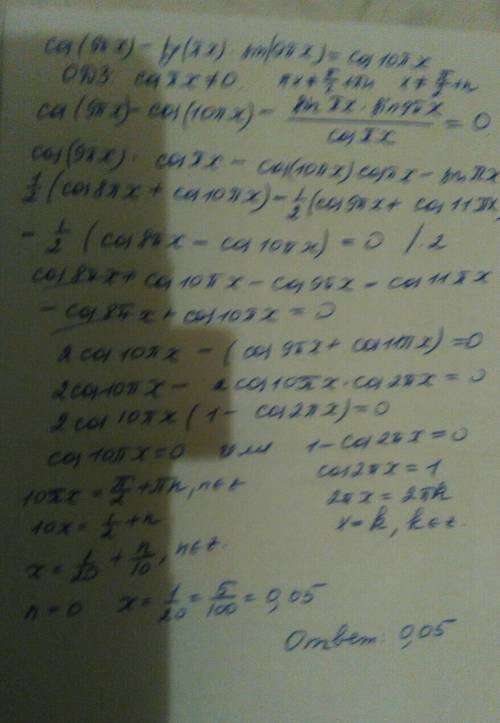 cos(9πx) − tg(πx) · sin(9πx) = cos10πx
ОДЗ: cosπx ≠ 0
cos(9πx) − cos(10πx) − sinπx · sin9πx / cosπx = 0
cos(9πx) · cosπx − cos(10πx) cosπx − sinπx
1/2 (cos8πx + cos10πx) − 1/2 (cos9πx + cos11πx)
− 1/2 (cos8πx − cos10πx) = 0 | · 2
cos8πx + cos10πx − cos9πx − cos11πx
− cos8πx + cos10πx = 0
2cos10πx − (cos9πx + cos11πx) = 0
2cos10πx − 2cos10πx · cos2πx = 0
2cos10πx (1 − cos2πx) = 0
cos10πx = 0 или 1 − cos2πx = 0
10πx = π/2 + πn, n∈z cos2πx = 1
10x = 1/2 + n 2πx = 2πk
x = 1/20 + n/10, n∈z. x = k, k∈z.
n = 0 x = 1/20 = 5/100 = 0,05
Ответ: 0,05